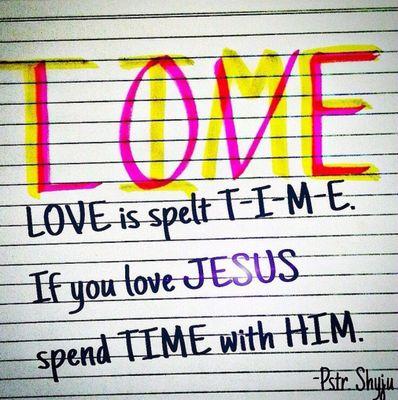 LOVE
TIME
LOVE is spelt T-I-M-E.
If you love JESUS
spend TIME with HIM.
-Pstr Shyju